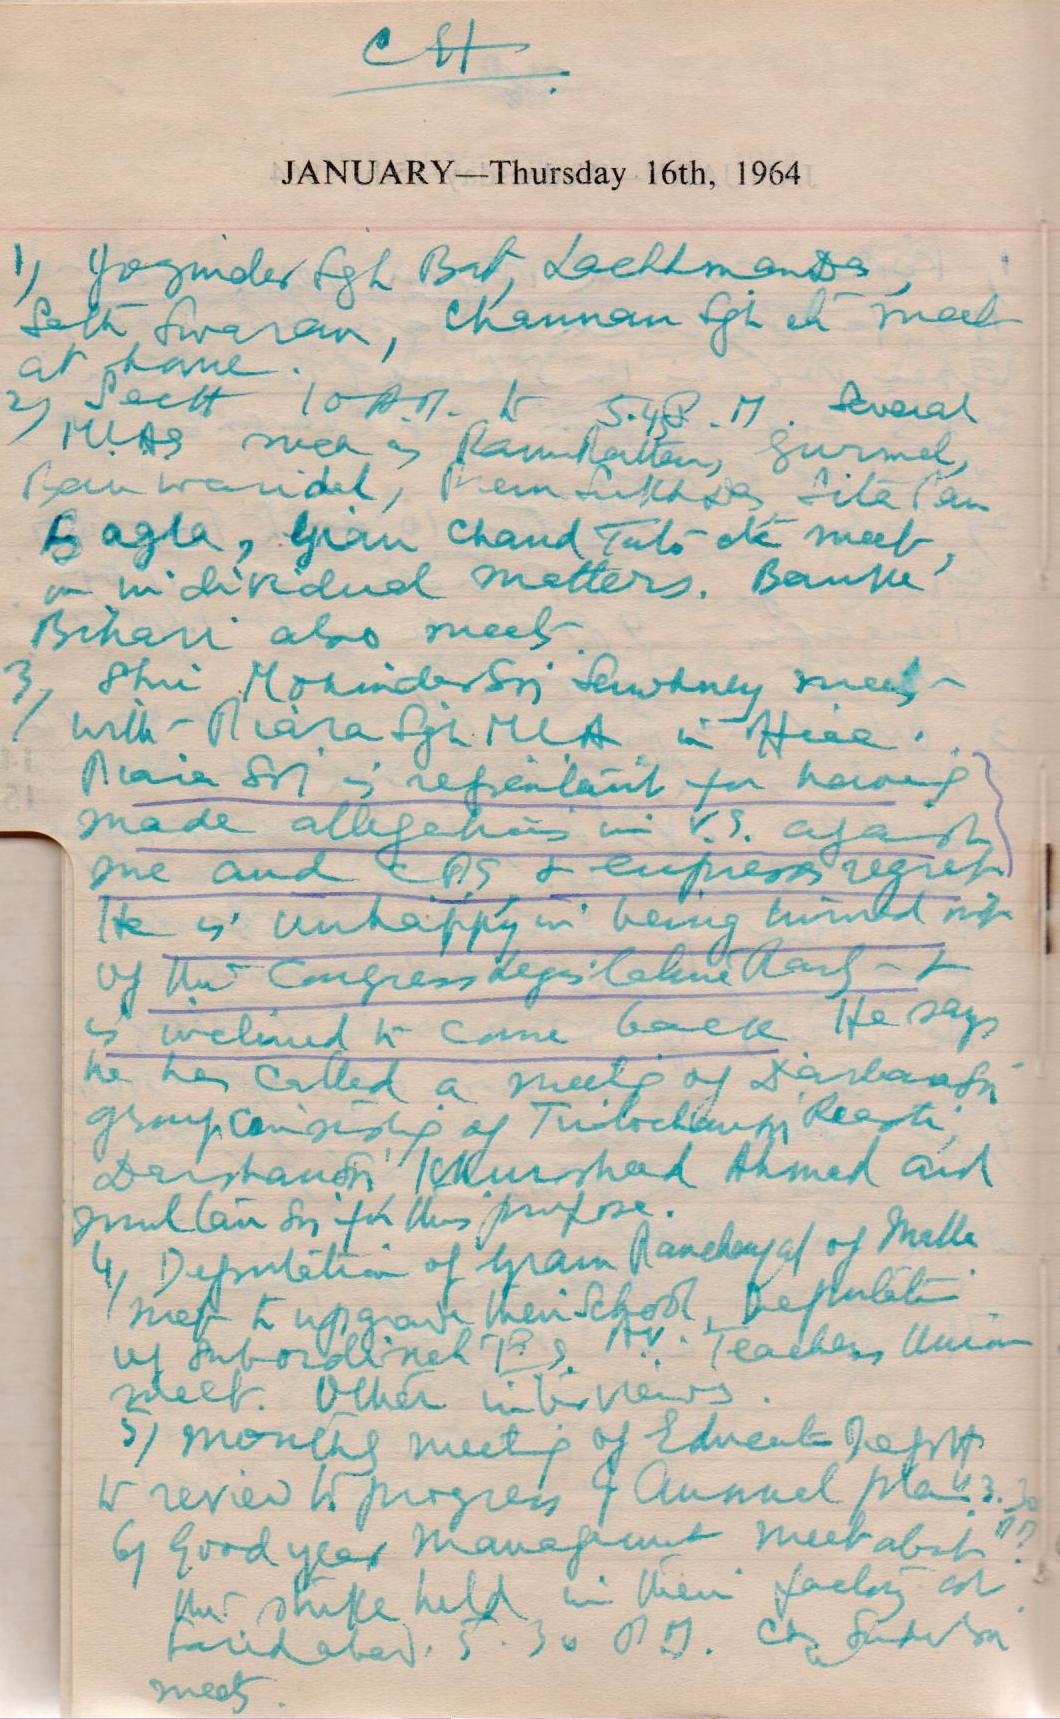 JANUARY—Thursday 16th, 1964
1, Joginder Sgh Bat, Lachhman Das,
Seth Swaran, Channan Sgh etc meet
at home.
2, Sectt 10 A.M. to 5.45 P.M. Several
MLAs such as Ram Rattan, Gurmel,
Banwarilal, Prem Sukh Das, Sita Ram
Bagla, Gian Chand Tuto etc meet,
in individual matters. Banke
Bihari also meets
3, Shri Mohinder Sgh Sawhney meets
with Piara Sgh MLA in
Piara Sgh is repentant for having
made allegations in V.S. against
me and CPS & express regret
He is unhappy in being turned out
of the Congress Legislature Party &
is inclined to come back He says
he has called a meetig of Darbara Sgh
group consistig of Trilochan Sgh Reasti,
Darshan Sgh Khurshed Ahmed and
Gurban Sgh for this purpose.
4, Deputation of Gram Panchayat of Malla
meet to upgrade their School, Deputation
of Subordinate Teachers Union
meet. Other interviews.
5, monthly meeting of Education Deptt
to review to progress of Annual plan 3.30
6, Good year Management meet about PM
the strike held in their factory at
Faridabad. 5.30 P.M.
meets.